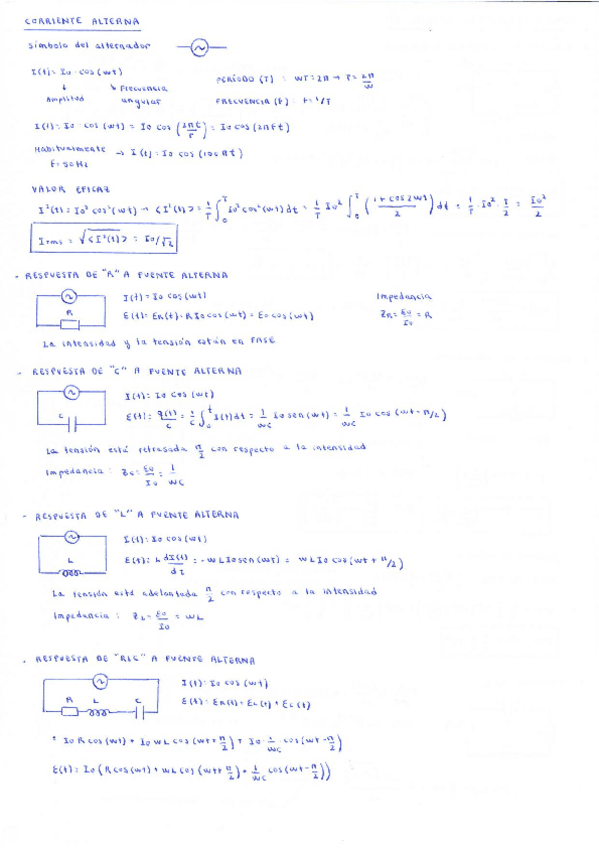 CORRIENTE ALTERNA
Símbolo del alternador
I(t) = I0 · cos(wt)
Amplitud
Frecuencia angular
PERÍODO (T) : WT = 2π → T = 2π/W
FRECUENCIA (F) : F = 1/T
I(t) = I0 · cos(wt) = I0 cos(2πt/T) = I0 cos(2πFt)
Habitualmente F = 50Hz → I(t) = I0 cos(100πt)
VALOR EFICAZ
I²(t) = I0² cos²(wt) → <I²(t)> = 1/T ∫0^T I0² cos²(wt) dt = 1/T I0² ∫0^T (1 + cos2wt / 2) dt = 1/T · I0² · T/2 = I0²/2
Irms = √<I²(t)> = I0/√2
- RESPUESTA DE "R" A FUENTE ALTERNA
R
I(t) = I0 cos(wt)
Impedancia
E(t) = ER(t) = R I0 cos(wt) = E0 cos(wt)
ZR = E0/I0 = R
La intensidad y la tensión están en FASE
- RESPUESTA DE "C" A FUENTE ALTERNA
C
I(t) = I0 cos(wt)
E(t) = q(t)/C = 1/C ∫0^t I(t) dt = 1/WC I0 sen(wt) = 1/WC I0 cos(wt - π/2)
La tensión está retrasada π/2 con respecto a la intensidad
Impedancia : Zc = E0/I0 = 1/WC
- RESPUESTA DE "L" A FUENTE ALTERNA
L
I(t) = I0 cos(wt)
E(t) = L dI(t)/dt = -wL I0 sen(wt) = wL I0 cos(wt + π/2)
La tensión está adelantada π/2 con respecto a la intensidad
Impedancia : ZL = E0/I0 = wL
. RESPUESTA DE "RLC" A FUENTE ALTERNA
R L C
I(t) = I0 cos(wt)
E(t) = ER(t) + EL(t) + EC(t)
= I0 R cos(wt) + I0 wL cos(wt + π/2) + I0 · 1/WC · cos(wt - π/2)
E(t) = I0 (R cos(wt) + wL cos(wt + π/2) + 1/WC cos(wt - π/2))